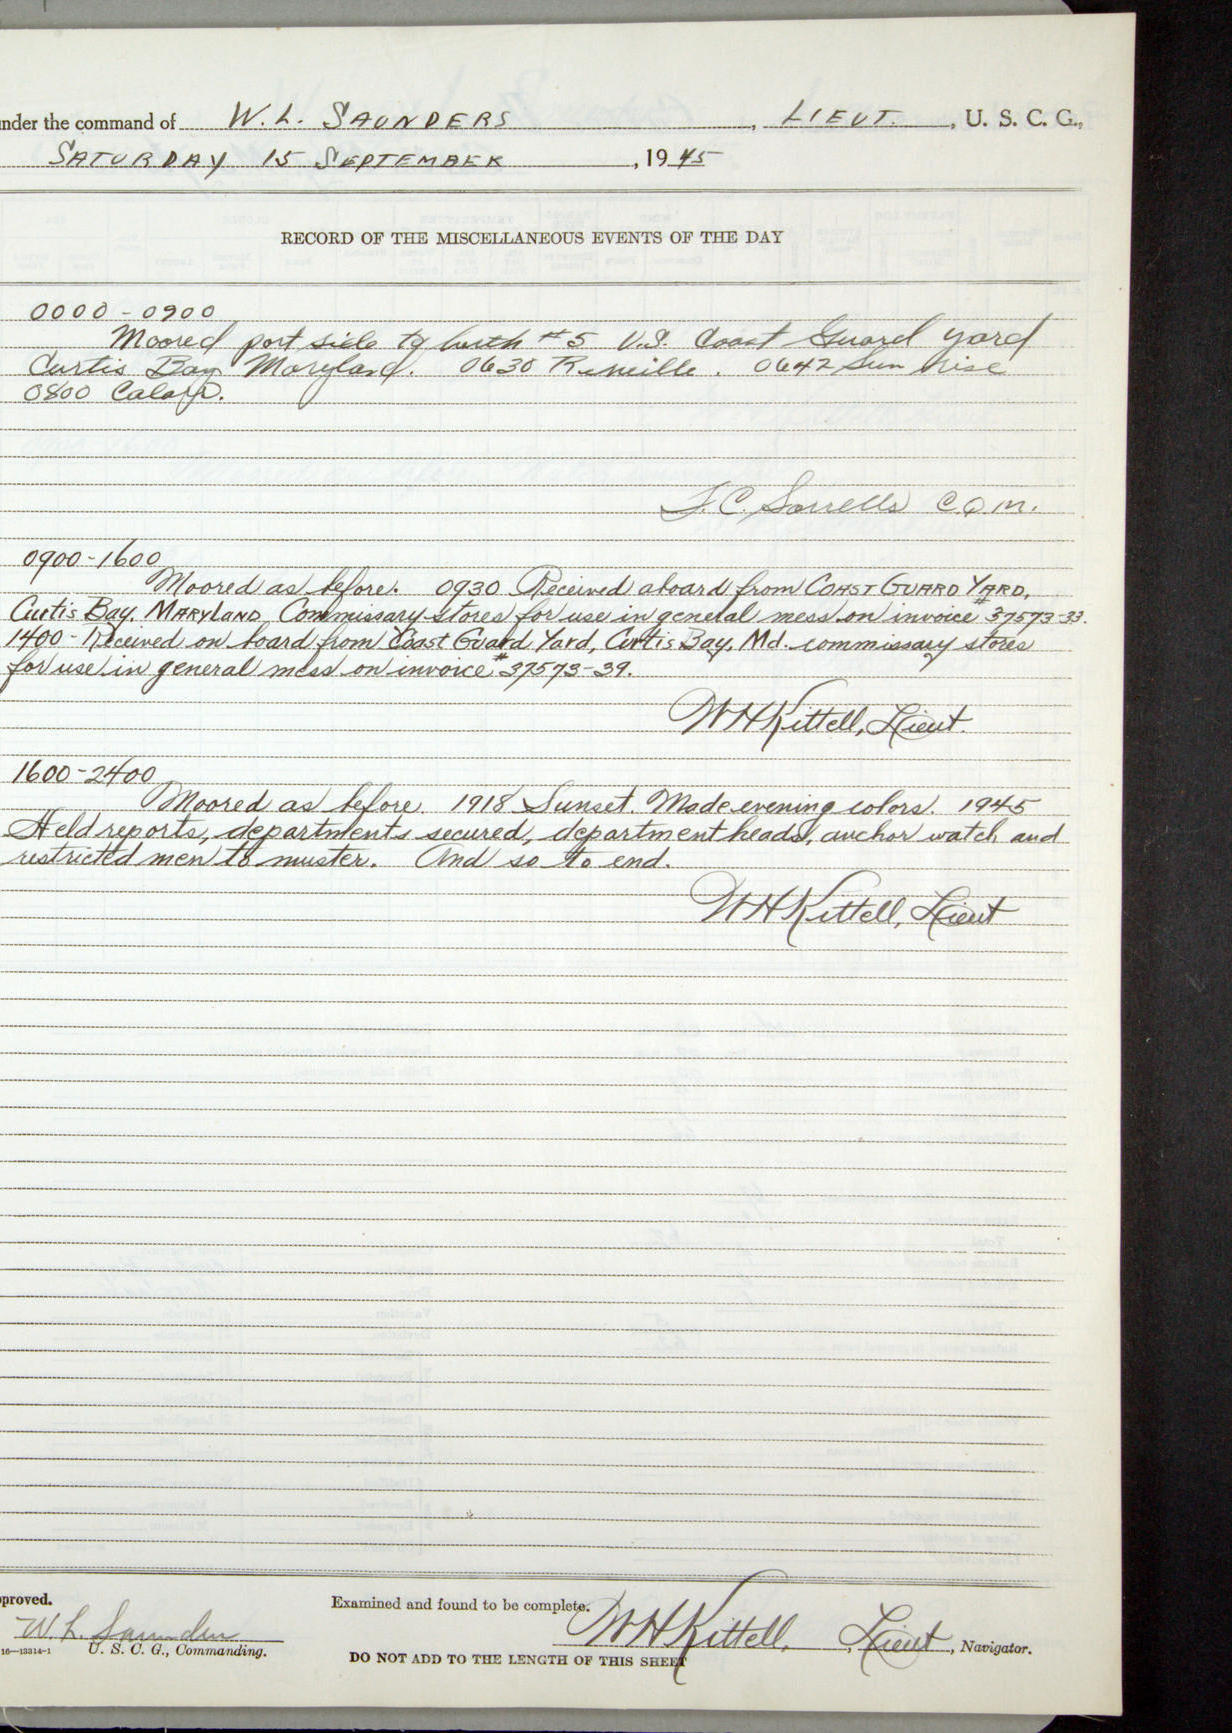 nder the command of W. L. SAUNDERS, LIEUT., U. S. C. G.,
SATURDAY 15 SEPTEMBER, 1945
RECORD OF THE MISCELLANEOUS EVENTS OF THE DAY
0000 - 0900
Moored port side to berth #5 U.S. Coast Guard yard
Curtis Bay Maryland. 0630 Reveille. 0642 Sun rise
0800 Colors.
F. C. Sorrells C.Q.M.
0900-1600
Moored as before. 0930 Received aboard from COAST GUARD YARD,
Curtis Bay, MARYLAND, Commissary stores for use in general mess on invoice #37573-33.
1400 - Received on board from Coast Guard Yard, Curtis Bay, Md. commissary stores
for use in general mess on invoice #37573-39.
W H Kittell, Lieut.
1600-2400
Moored as before. 1918 Sunset. Made evening colors. 1945
Held reports, departments secured, department heads, anchor watch and
restricted men to muster. And so to end.
W H Kittell, Lieut
pproved.
Examined and found to be complete.
W. L. Saunders
W H Kittell, Lieut, Navigator.
16—13314-1 U. S. C. G., Commanding.
DO NOT ADD TO THE LENGTH OF THIS SHEET